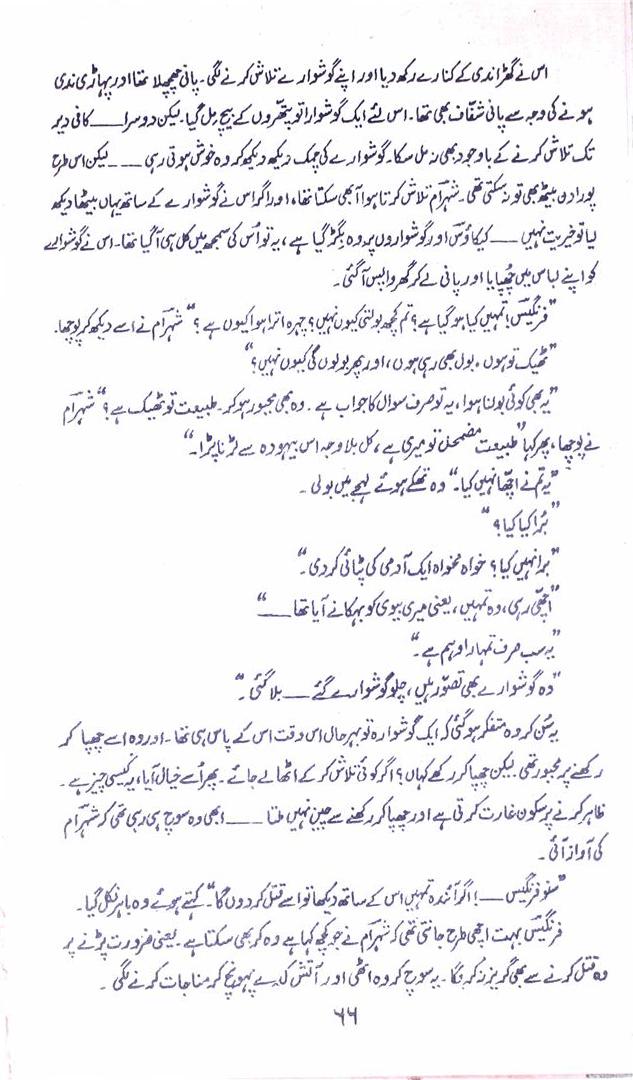 اس نے گھڑا ندی کے کنارے رکھ دیا اور اپنے گوشوارے تلاش کرنے لگی۔ پانی چھچھلا تھا اور پہاڑی ندی
ہونے کی وجہ سے پانی شفّاف بھی تھا۔ اس لئے ایک گوشوارا تو پتھّروں کے بیچ مل گیا۔ لیکن دوسرا ــــ کافی دیر
تک تلاش کرنے کے باوجود بھی نہ مل سکا۔ گوشوارے کی چمک دیکھ دیکھ کر وہ خوش ہوتی رہی ــــ لیکن اس طرح
پورا دن بیٹھ بھی تو نہ سکتی تھی۔ شہرام تلاش کرتا ہوا آ بھی سکتا تھا، اور اگر اس نے گوشوارے کے ساتھ یہاں بیٹھا دیکھ
لیا تو خیریت نہیں ــــ کیکاؤس اور گوشواروں پر وہ بگڑ گیا ہے، یہ تو اُس کی سمجھ میں کل ہی آگیا تھا۔ اس نے گوشوارے
کو اپنے لباس میں چُھپایا اور پانی لے کر گھر واپس آگئی۔
”فرنگیس! تمہیں کیا ہو گیا ہے؟ تم کچھ بولتی کیوں نہیں؟ چہرہ اترا ہوا کیوں ہے؟“ شہرام نے اسے دیکھ کر پوچھا۔
”ٹھیک تو ہوں۔ بول بھی رہی ہوں، اور پھر بولوں گی کیوں نہیں؟“
”یہ بھی کوئی بولنا ہوا، یہ تو صرف سوال کا جواب ہے۔ وہ بھی مجبور ہو کر۔ طبیعت تو ٹھیک ہے؟“ شہرام
نے پوچھا، پھر کہا ”طبیعت مضمحل تو میری ہے، کل بلا وجہ اس بیہودہ سے لڑنا پڑا۔“
”یہ تم نے اچّھا نہیں کیا۔“ وہ تھکے ہوئے لہجے میں بولی۔
”بُرا کیا کیا؟“
”برا نہیں کیا؟ خواہ مخواہ ایک آدمی کی پٹائی کر دی۔“
”اچّھی رہی، وہ تمہیں، یعنی میری بیوی کو بہکانے آیا تھا ــــ“
”یہ سب صرف تمہارا وہم ہے۔“
”وہ گوشوارے بھی تصوّر ہیں، چلو گوشوارے گئے ــــ بلا گئی۔“
یہ سُن کر وہ متفکر ہو گئی کہ ایک گوشوارہ تو بہرحال اس وقت اس کے پاس ہی تھا۔ اور وہ اسے چھپا کر
رکھنے پر مجبور تھی لیکن چھپا کر رکھے کہاں؟ اگر کوئی تلاش کر کے اٹھا لے جائے۔ پھر اُسے خیال آیا، یہ کیسی چیز ہے۔
ظاہر کرنے پر سکون غارت کرتی ہے اور چھپا کر رکھنے سے چین نہیں ملتا ــــ ابھی وہ سوچ ہی رہی تھی کہ شہرام
کی آواز آئی۔
”سنو فرنگیس ــــ! اگر آئندہ تمہیں اس کے ساتھ دیکھا تو اسے قتل کر دوں گا“۔ کہتے ہوئے وہ باہر نکل گیا۔
فرنگیس بہت اچھی طرح جانتی تھی کہ شہرام نے جو کچھ کہا ہے وہ کر بھی سکتا ہے۔ یعنی ضرورت پڑنے پر
وہ قتل کرنے سے بھی گریز نہ کریگا۔ یہ سوچ کر وہ اٹھی اور آتش کدے پہونچ کر مناجات کرنے لگی۔
۶۶